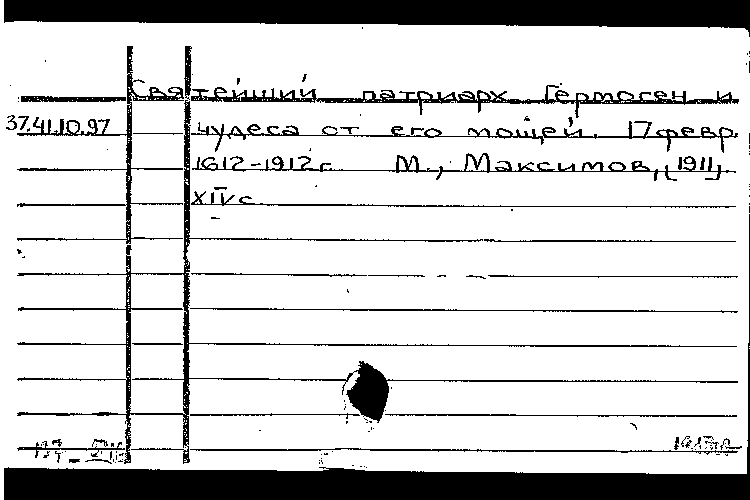 Святейший патриарх Гермоген и
37.41.10.97 чудеса от его мощей. 17 февр.
1612-1912 г. М., Максимов, [1911].
XIV с